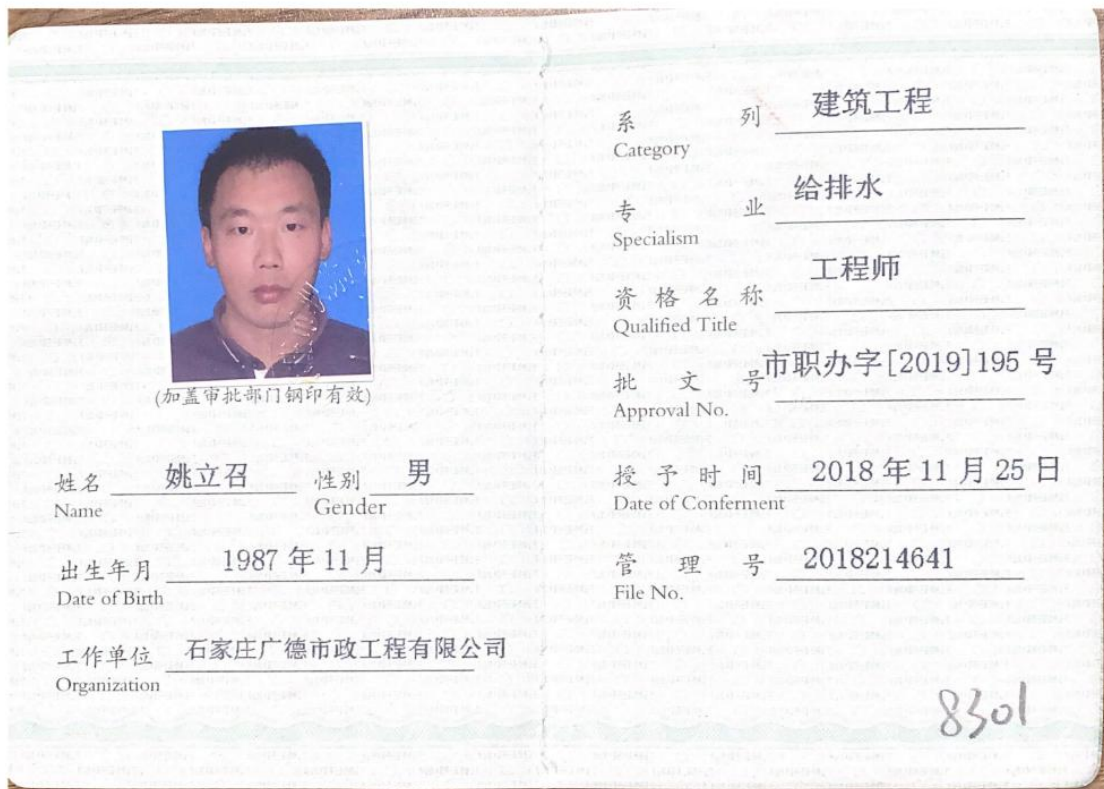 (加盖审批部门钢印有效)
姓名 姚立召 性别 男
Name Gender
出生年月 1987年11月
Date of Birth
工作单位 石家庄广德市政工程有限公司
Organization
系列 建筑工程
Category
专业 给排水
Specialism
资格名称 工程师
Qualified Title
批文号 市职办字[2019]195号
Approval No.
授予时间 2018年11月25日
Date of Conferment
管理号 2018214641
File No.
8301